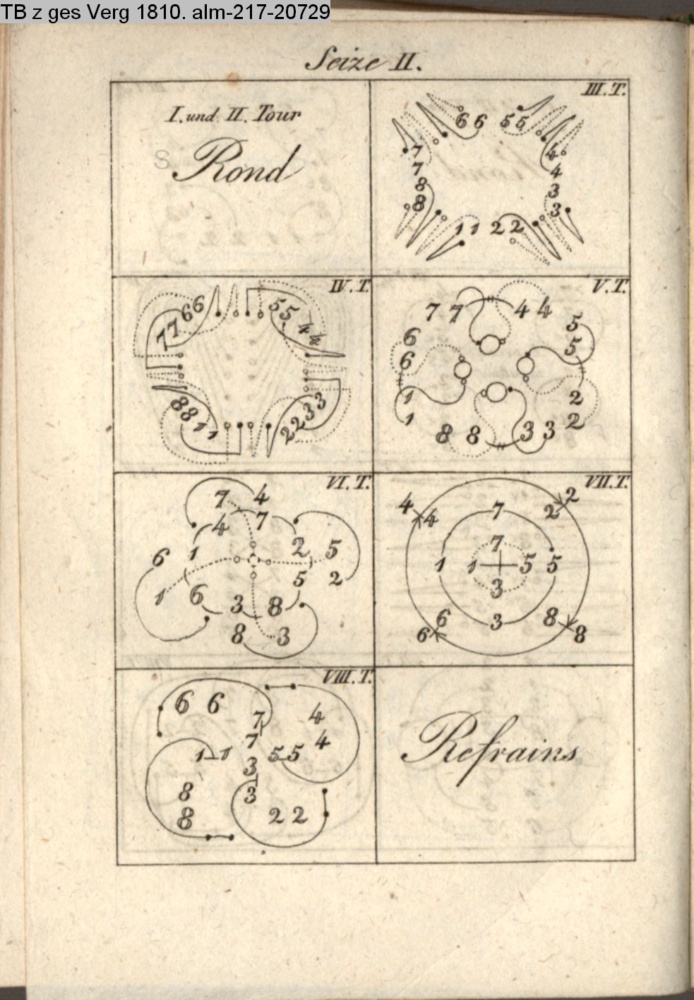 TB z ges Verg 1810. alm-217-20729
Seize II.
I. und II. Tour
Rond
III. T.
6 6 5 5
7 4
7 4
8 3
8 3
1 1 2 2
IV. T.
7 7 6 6 5 5 4 4
8 8 1 1 2 2 3 3
V. T.
7 7 4 4
6 5
6 5
1 2
1 2
8 8 3 3
VI. T.
7 4
4 7
6 1 2 5
1 6 5 2
3 8
8 3
VII. T.
4 4 7 2 2
7
1 1 5 5
3
6 6 3 8 8
VIII. T.
6 6 7 4
7 4
1 1 5 5
3
8 3
8 2 2
Refrains